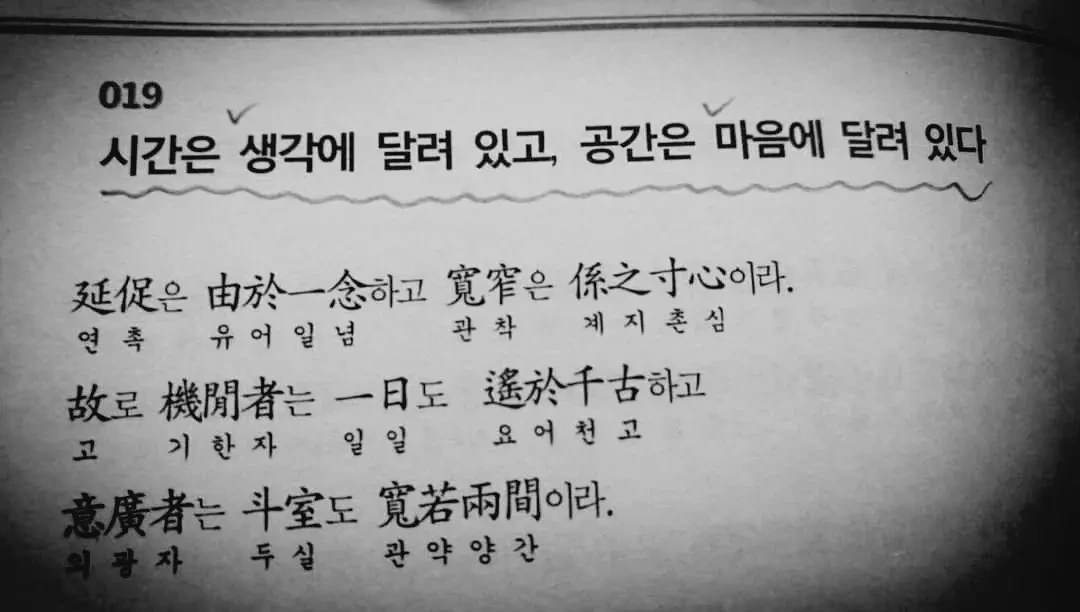 019
시간은 생각에 달려 있고, 공간은 마음에 달려 있다
延促은 由於一念하고 寬窄은 係之寸心이라.
연촉 유어일념 관착 계지촌심
故로 機閒者는 一日도 遙於千古하고
고 기한자 일일 요어천고
意廣者는 斗室도 寬若兩間이라.
의광자 두실 관약양간